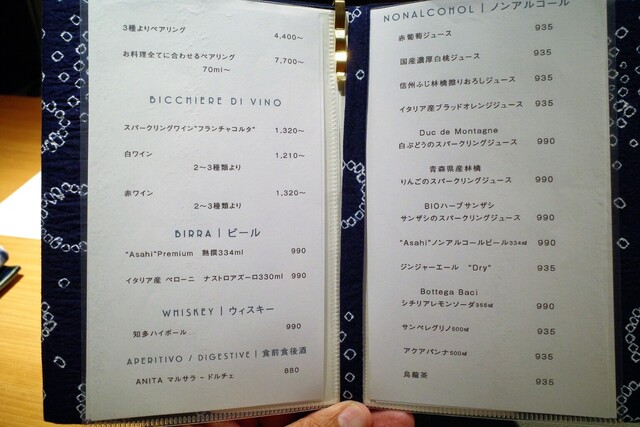 3種よりペアリング 4,400〜
お料理全てに合わせるペアリング 7,700〜
70ml〜
BICCHIERE DI VINO
スパークリングワイン"フランチャコルタ" 1,320〜
白ワイン 1,210〜
2〜3種類より
赤ワイン 1,320〜
2〜3種類より
BIRRA | ビール
"Asahi"Premium 熟撰334ml 990
イタリア産 ペローニ ナストロアズーロ330ml 990
WHISKEY | ウィスキー
知多ハイボール 990
APERITIVO / DIGESTIVE | 食前食後酒
ANITA マルサラ - ドルチェ 880
NONALCOHOL | ノンアルコール
赤葡萄ジュース 935
国産濃厚白桃ジュース 935
信州ふじ林檎擦りおろしジュース 935
イタリア産ブラッドオレンジジュース 935
Duc de Montagne
白ぶどうのスパークリングジュース 990
青森県産林檎
りんごのスパークリングジュース 990
BIOハーブサンザシ
サンザシのスパークリングジュース 990
"Asahi"ノンアルコールビール334㎖ 990
ジンジャーエール "Dry" 935
Bottega Baci
シチリアレモンソーダ355㎖ 990
サンペレグリノ500㎖ 935
アクアパンナ500㎖ 935
烏龍茶 935